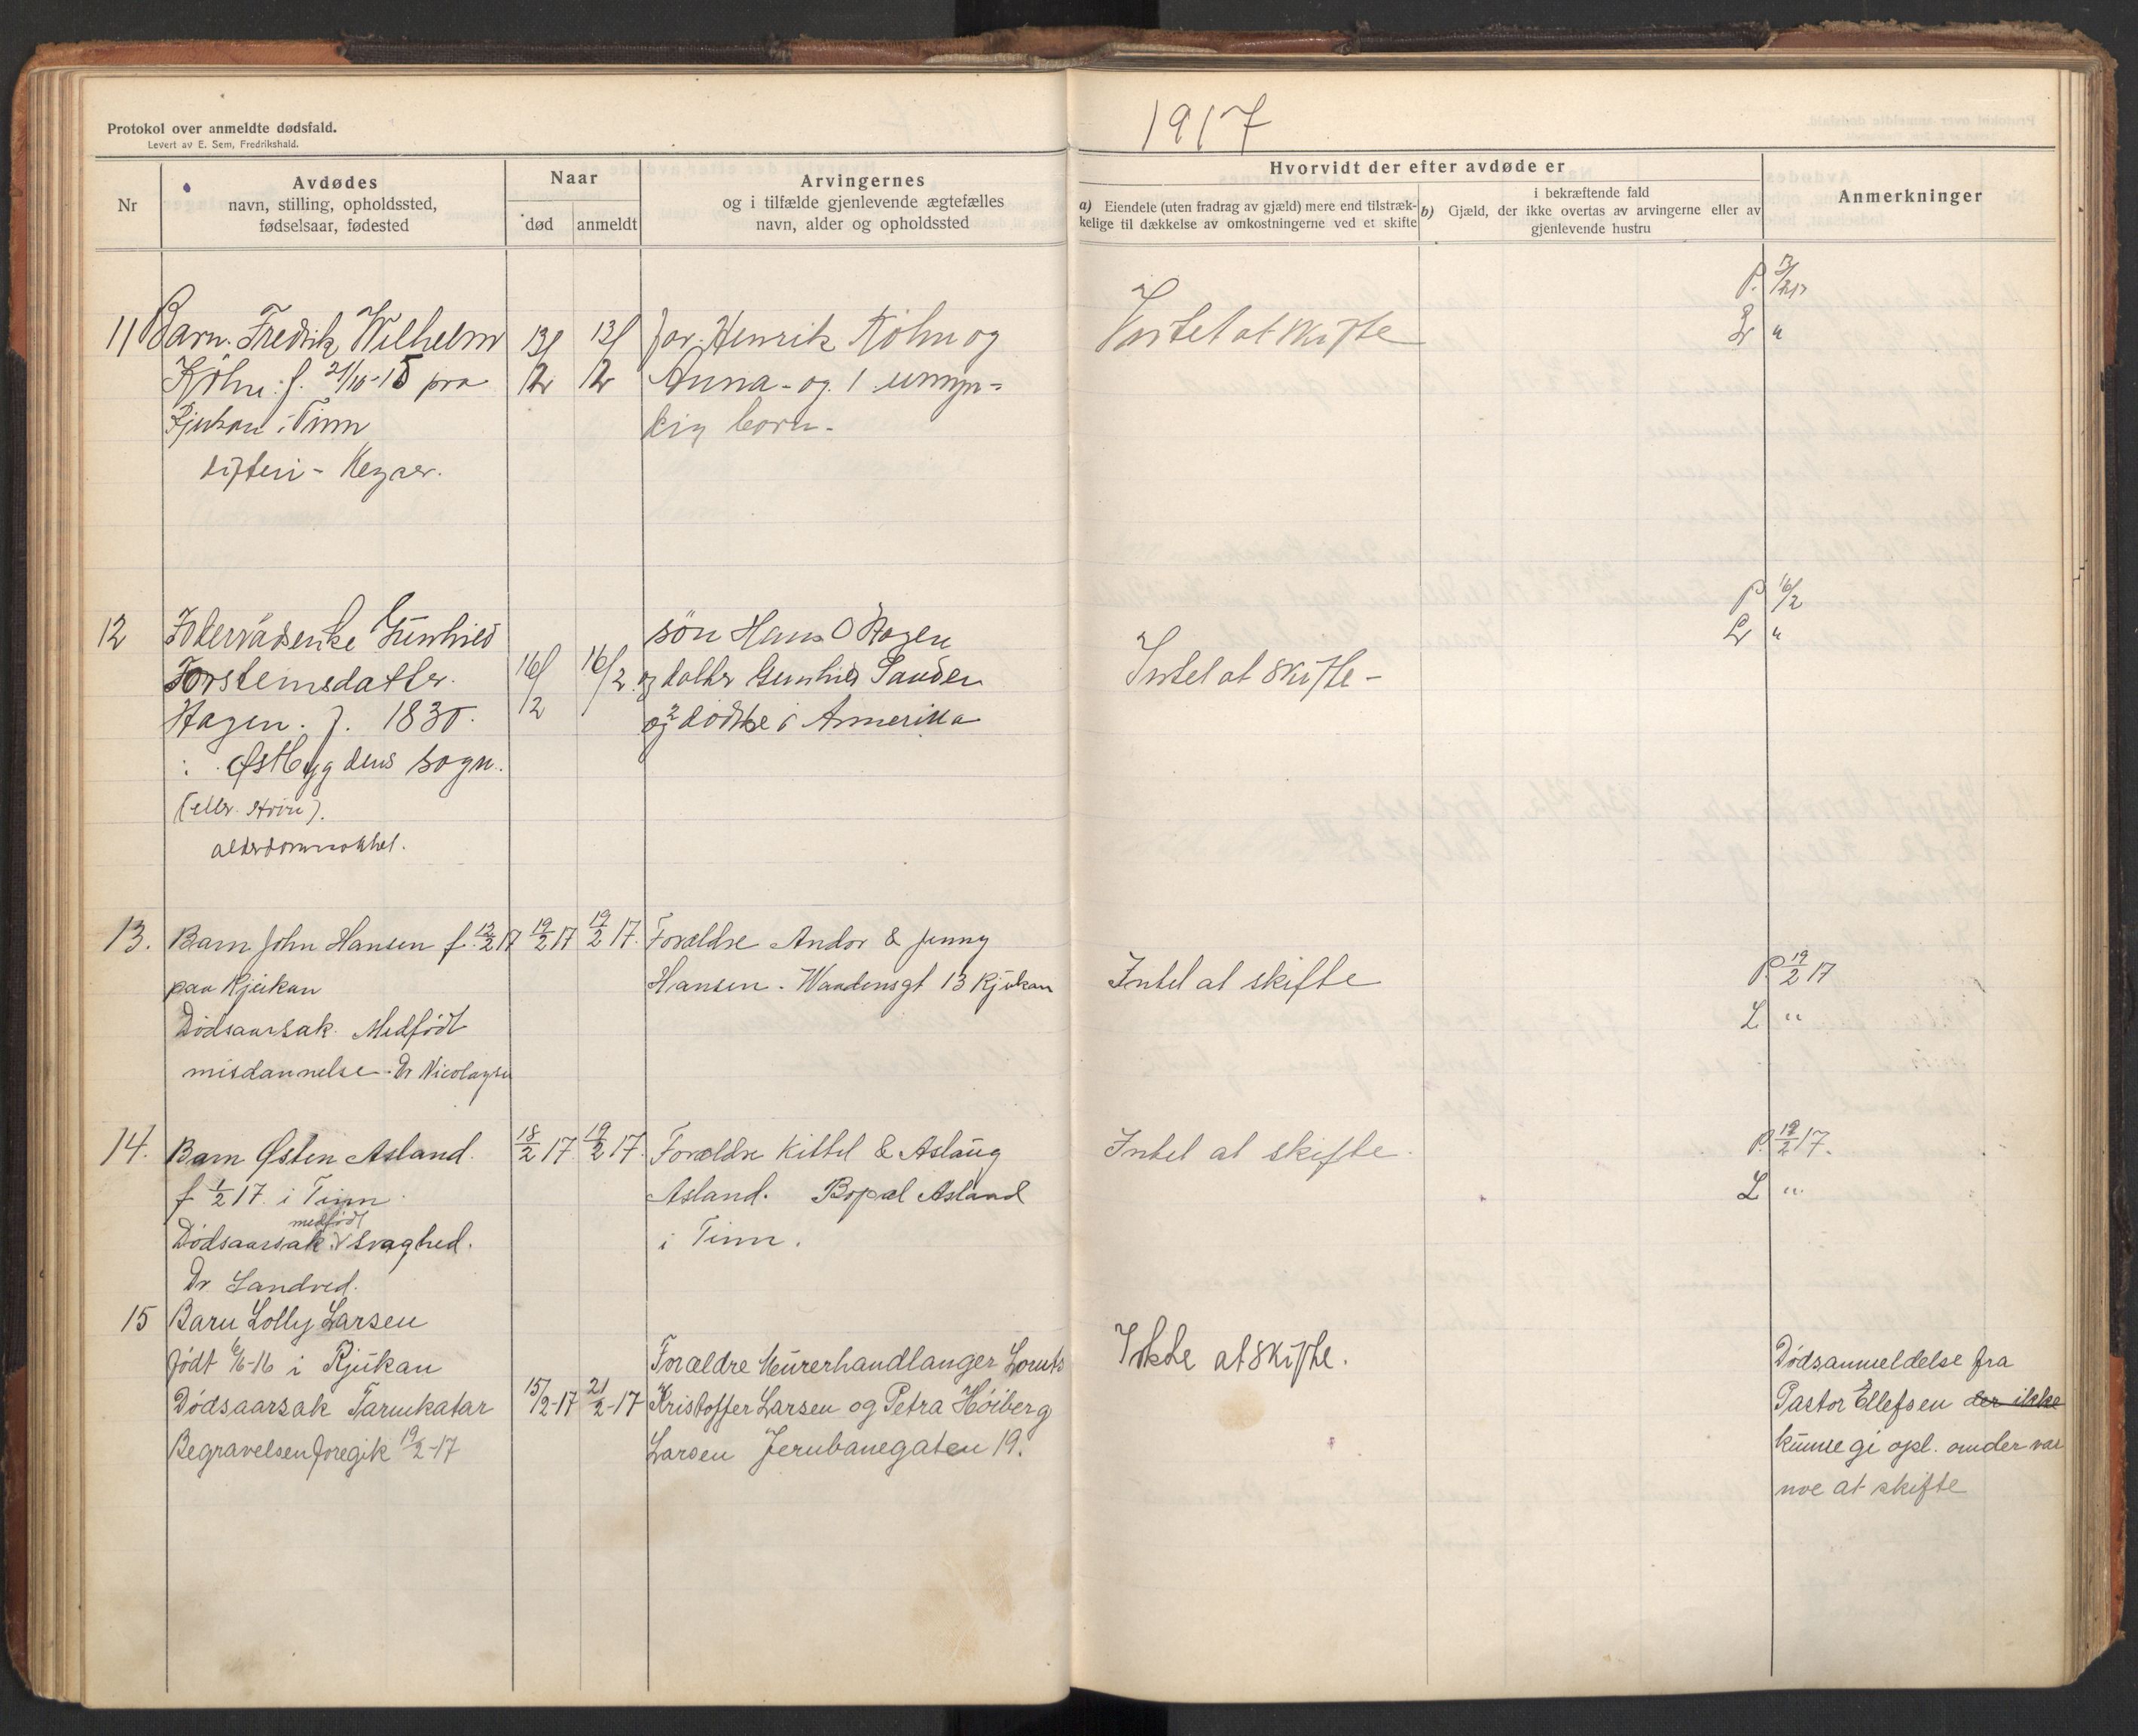 Protokol over anmeldte dødsfald.
Levert av E. Sem, Fredrikshald.
1917
Nr
Avdødes
navn, stilling, opholdssted,
fødselsaar, fødested
Naar
død
anmeldt
Arvingernes
og i tilfælde gjenlevende ægtefælles
navn, alder og opholdssted
Hvorvidt der efter avdøde er
a) Eiendele (uten fradrag av gjæld) mere end tilstræk-
kelige til dækkelse av omkostningerne ved et skifte
i bekræftende fald
b) Gjæld, der ikke overtas av arvingerne eller av
gjenlevende hustru
Anmerkninger
11 Barn. Fredrik Wilhelm
Köhn. f. 21/10-15 pra
Rjukan i Tinn
difteri - Keyser.
13/
12
13/
12
far. Henrik Köhn og
Anna - og 1 umyn-
dig barn -
Intet at skifte
P. 13/2 17
L "
12
Gunhild
Torsteinsdatter.
Hagen. f. 1830.
i Østbygdens sogn.
alderdom
16/
12
16/2
sön Hans O Hagen
og datter Gunhild Sanden
og 2 döttre i Amerika
Intet at skifte -
P 16/2
L "
13. Barn John Hansen f. 12/2 17
paa Rjukan
Dödsaarsak. Medfödt
misdannelse - Dr Nicolaysen
19/2 17
19/2 17.
Forældre Andor & Jenny
Hansen - Waadensgt 13 Rjukan
Intet at skifte
P. 19/2 17
L "
14. Barn Østen Asland.
f 1/2 17. i Tinn.
medfödt
Dödsaarsak. V Svaghed.
Dr Landved.
18/2 17
19/2 17.
Forældre Kittel & Aslaug
Asland. Bopæl Asland
i Tinn.
Intet at skifte.
P. 19/2 17.
L "
15 Barn Lolly Larsen
födt 6/6-16 i Rjukan
Dödsaarsak Tarmkatar
Begravelsen foregik 19/2-17
15/2-17
21/2-17
Forældre Murerhandlanger Lorents
Kristoffer Larsen og Petra Höiberg
Larsen Jernbanegaten 19.
Ikke at skifte.
Dödsanmeldelse fra
Pastor Ellefsen der ikke
kunne gi opl. om der var
noe at skifte